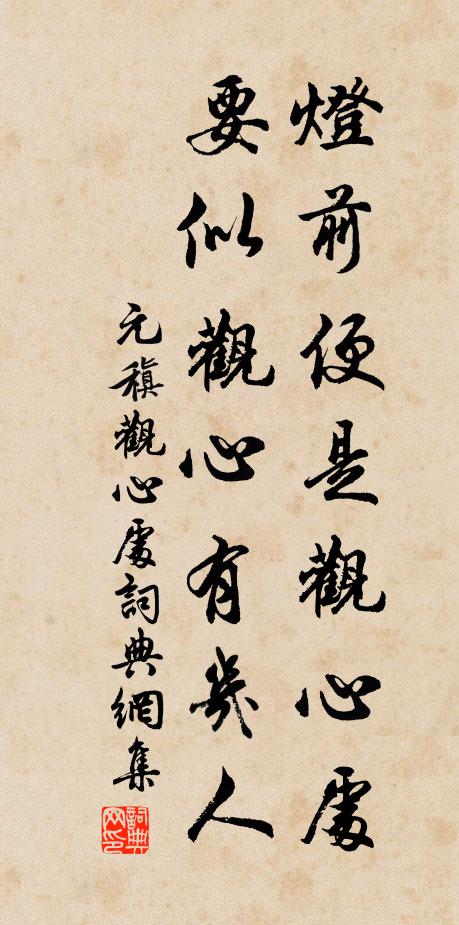 燈前便是觀心處
要似觀心有幾人
元稹觀心處詞典網集
詞典网印